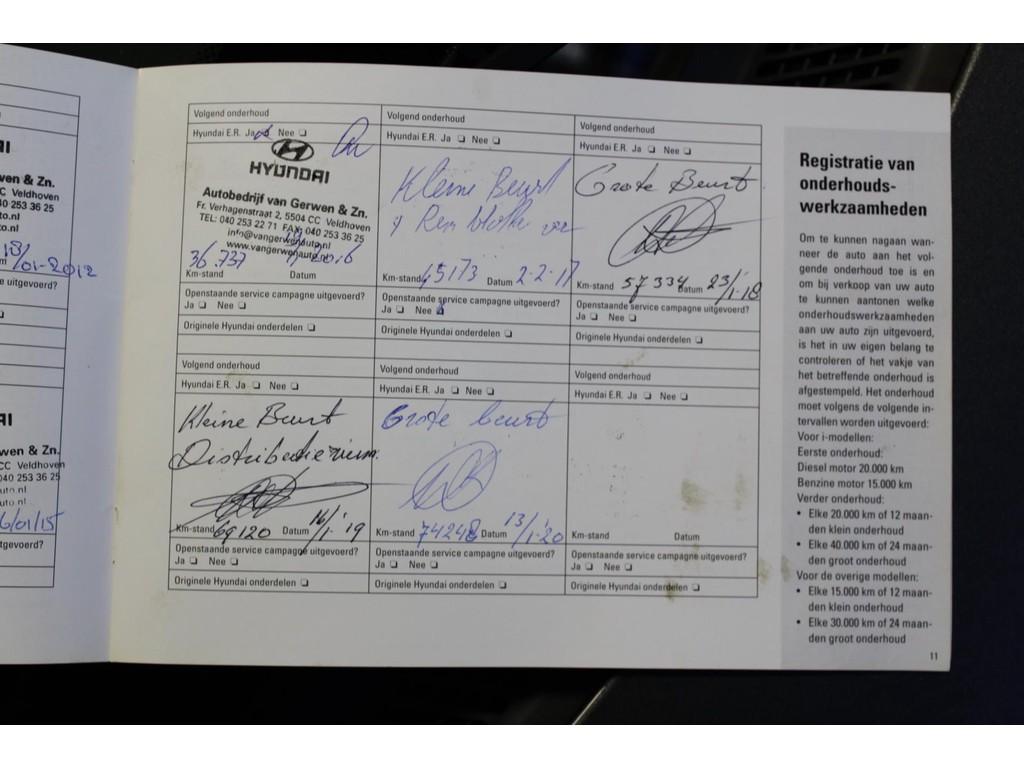 AI
wen & Zn.
CC Veldhoven
40 253 36 25
to.nl
uto.nl
18/01-2012
e uitgevoerd?
AI
wen & Zn.
CC Veldhoven
040 253 36 25
uto.nl
uto.nl
6/01/15
tgevoerd?
Volgend onderhoud
Hyundai E.R. Ja ❏ Nee ❏
HYUNDAI
Autobedrijf van Gerwen & Zn.
Fr. Verhagenstraat 2, 5504 CC Veldhoven
TEL: 040 253 22 71 FAX: 040 253 36 25
info@vangerwenauto.nl
www.vangerwenauto.nl
36.737
Km-stand Datum
Openstaande service campagne uitgevoerd?
Ja ❏ Nee ❏
Originele Hyundai onderdelen ❏
Volgend onderhoud
Hyundai E.R. Ja ❏ Nee ❏
Kleine Beurt
Km-stand 45173 Datum 2-2-17
Openstaande service campagne uitgevoerd?
Ja ❏ Nee ❏
Originele Hyundai onderdelen ❏
Volgend onderhoud
Hyundai E.R. Ja ❏ Nee ❏
Grote Beurt
Km-stand 57334 Datum 23/1-18
Openstaande service campagne uitgevoerd?
Ja ❏ Nee ❏
Originele Hyundai onderdelen ❏
Volgend onderhoud
Hyundai E.R. Ja ❏ Nee ❏
Kleine Beurt
Distributieriem.
Km-stand 69120 Datum 16/1-19
Openstaande service campagne uitgevoerd?
Ja ❏ Nee ❏
Originele Hyundai onderdelen ❏
Volgend onderhoud
Hyundai E.R. Ja ❏ Nee ❏
Grote beurt
Km-stand 74248 Datum 13/1-20
Openstaande service campagne uitgevoerd?
Ja ❏ Nee ❏
Originele Hyundai onderdelen ❏
Volgend onderhoud
Hyundai E.R. Ja ❏ Nee ❏
Km-stand Datum
Openstaande service campagne uitgevoerd?
Ja ❏ Nee ❏
Originele Hyundai onderdelen ❏
Registratie van
onderhouds-
werkzaamheden
Om te kunnen nagaan wan-
neer de auto aan het vol-
gende onderhoud toe is en
om bij verkoop van uw auto
te kunnen aantonen welke
onderhoudswerkzaamheden
aan uw auto zijn uitgevoerd,
is het in uw eigen belang te
controleren of het vakje van
het betreffende onderhoud is
afgestempeld. Het onderhoud
moet volgens de volgende in-
tervallen worden uitgevoerd:
Voor i-modellen:
Eerste onderhoud:
Diesel motor 20.000 km
Benzine motor 15.000 km
Verder onderhoud:
• Elke 20.000 km of 12 maan-
den klein onderhoud
• Elke 40.000 km of 24 maan-
den groot onderhoud
Voor de overige modellen:
• Elke 15.000 km of 12 maan-
den klein onderhoud
• Elke 30.000 km of 24 maan-
den groot onderhoud
11